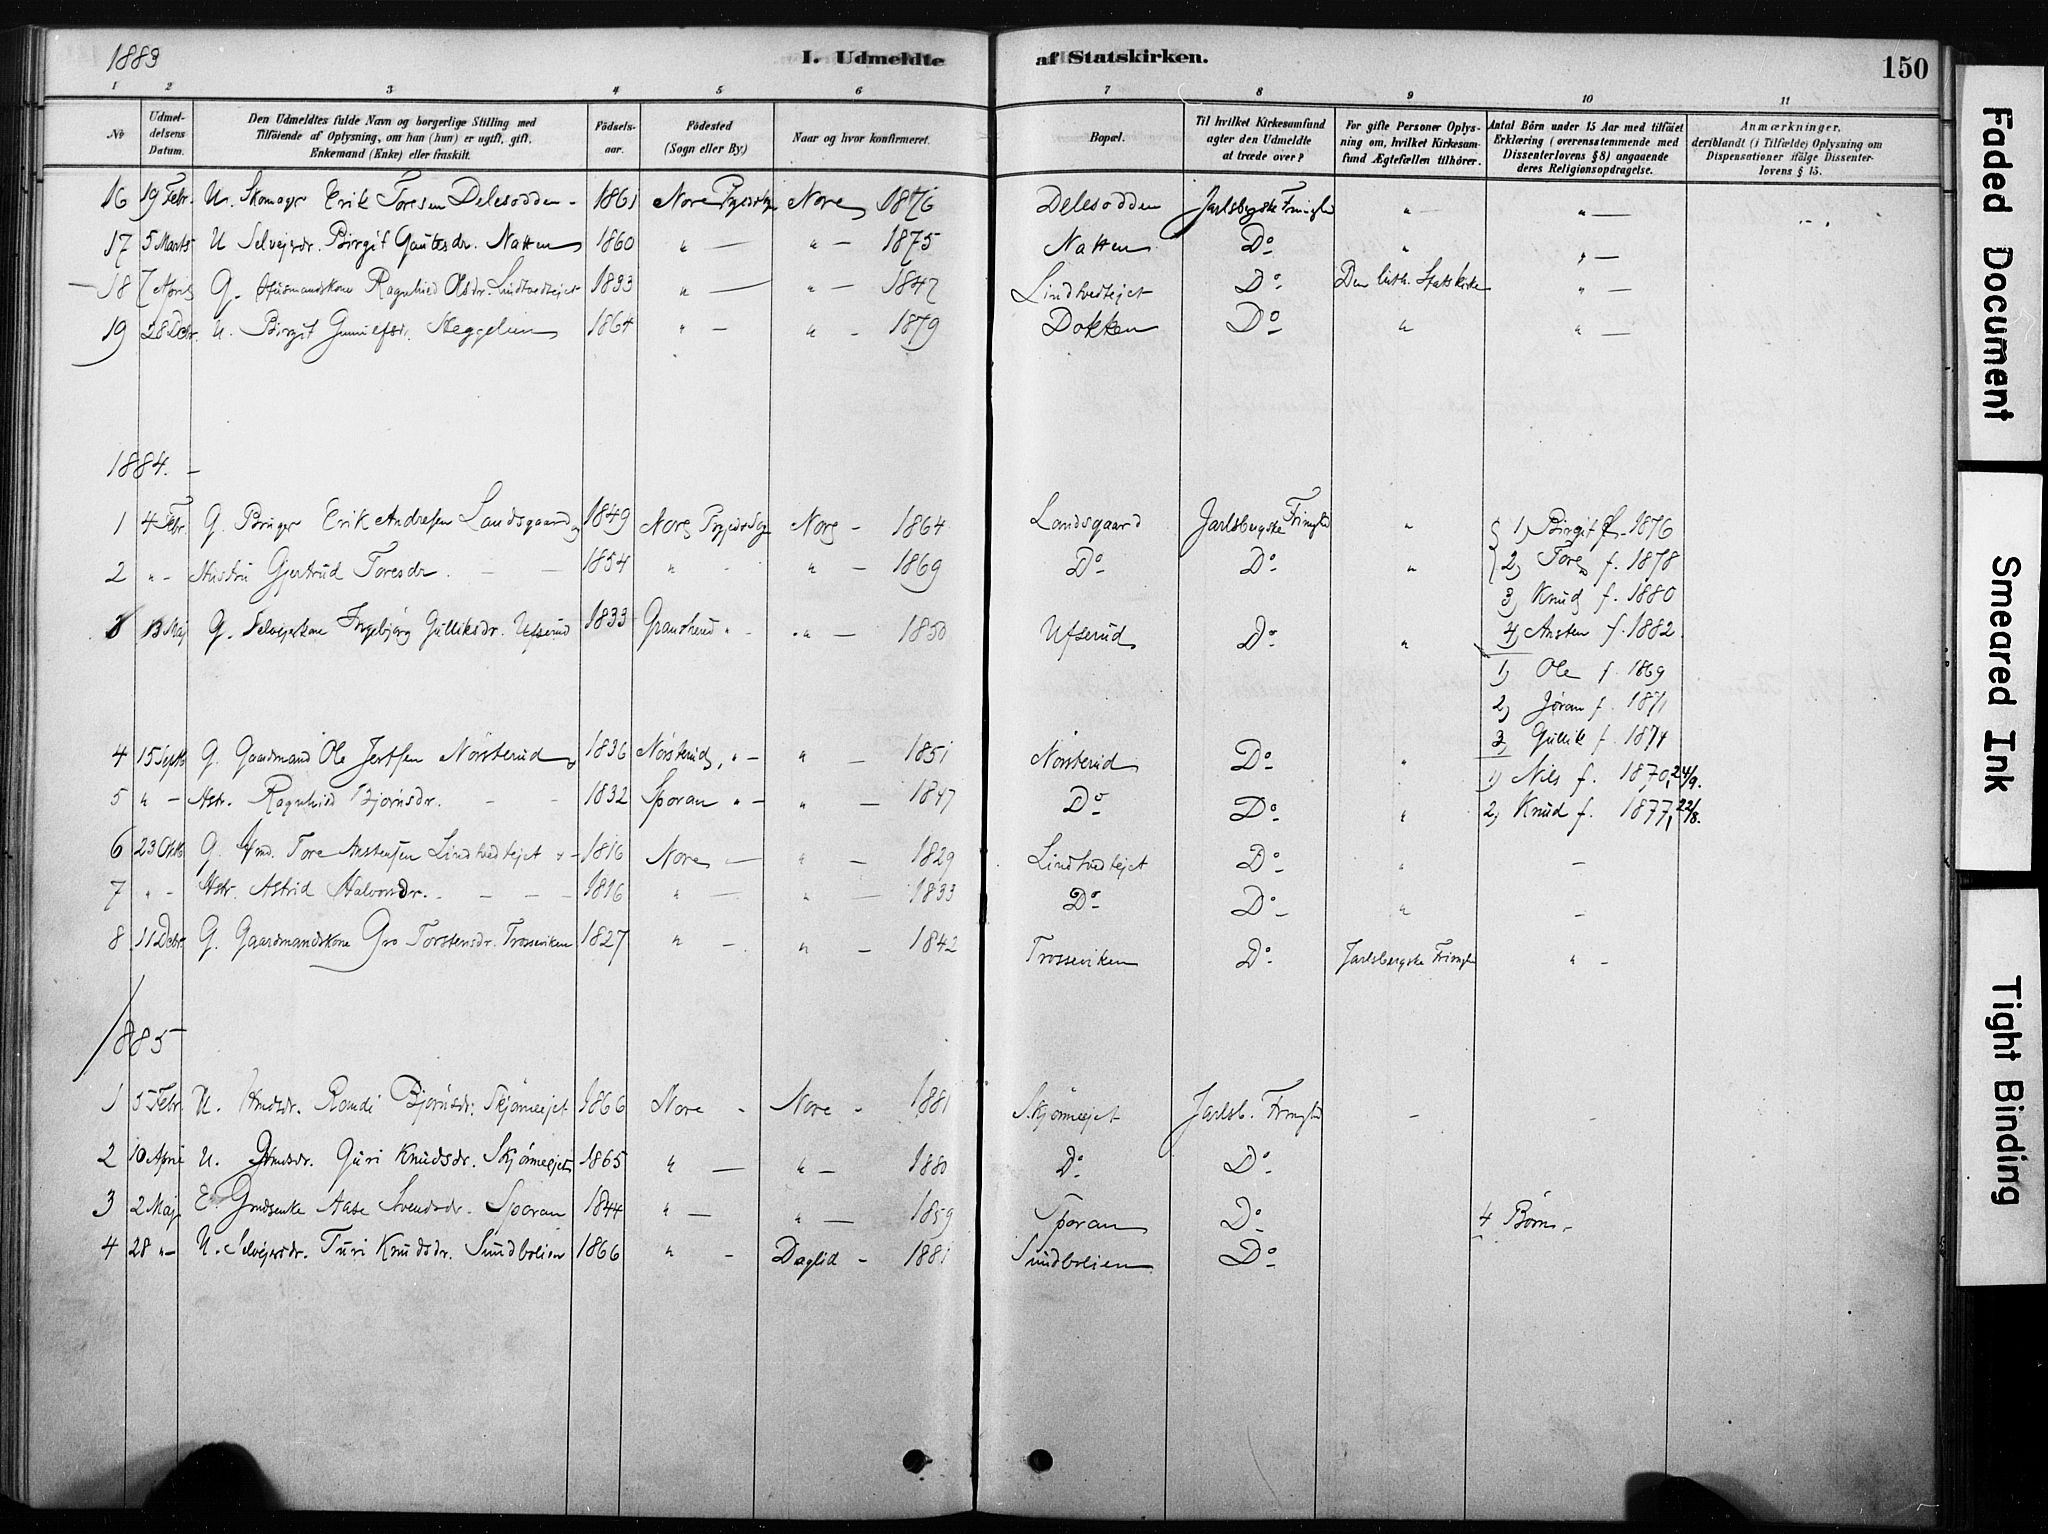 1883
I. Udmeldte af Statskirken.
150
1 2 3 4 5 6 7 8 9 10 11
No
Udmeldelsens Datum.
Den Udmeldtes fulde Navn og borgerlige Stilling med Tilføiende af Oplysning, om han (hun) er ugift, gift, Enkemand (Enke) eller fraskilt.
Fødselsaar.
Fødested (Sogn eller By.)
Naar og hvor konfirmeret.
Bopæl.
Til hvilket Kirkesamfund agter den Udmeldte at træde over?
For gifte Personer Oplysning om, hvilket Kirkesamfund Ægtefællen tilhører.
Antal Børn under 15 Aar med tilføiet Erklæring (overensstemmende med Dissenterlovens § 8) angaaende deres Religionsopdragelse.
Anmærkninger, deriblandt (i Tilfælde) Oplysning om Dispensationer ifølge Dissenterlovens § 15.
16 19 Febr. U. Skomager Erik Toresen Delesodden - 1861 Nore Nore 1876 Delesodden Jarlsbergske " " —
17 5 Marts U Selvejerdr. Birgit Gautesdr. Natten 1860 " — " — 1875 Natten Do " " —
18 7 April G. Husmandskone Ragnhild Olsdr. Lindtvedtejet 1833 " — " — 1847 Lindtvedtejet Do Den luth. Statskirke " —
19 28 Dcbr. U. Birgit Heggelien 1864 " — " — 1879 Dokken Do " " —
1884. -
1 4 Febr. G. Bruger Erik Andresen Landsgaard 1849 Nore Nore - 1864 Landsgaard Jarlsbergske " 1) Birgit f. 1876
2 " - Hustru Gjertrud Toresdr. — — 1854 " - " — 1869 Do Do " 2) Tore f. 1878
3) Knud f. 1880
13 Maj G. Selvejerkone Ingebjørg Gulliksdr. Ufserud 1833 Gransherred " - " — 1850 Ufserud Do " 4) Ansten f. 1882
1) Ole f. 1869
2) Jøran f. 1871
3) Gullik f. 1874
4 15 Septb G. Gaardmand Ole Nørsterud 1836 Nørsterud, " - " — 1851 Nørsterud Do " 1) Nils f. 1870, 24/9.
5 " - Hstr. Ragnhild Bjørnsdr. - - 1832 Sporan " - " — 1847 Do Do " 2) Knud f. 1877, 22/8.
6 23 Oktb G. Tore Anstensen Lindtvedtejet 1816 Nore — " — 1829 Lindtvedtejet Do " —
7 " - Hstr. Astrid Halvorsdr. - - - 1816 " — " — 1833 Do Do " —
8 11 Dcbr. G. Gaardmandskone Gro Torstensdr. Trosseviken 1827 " - " — 1842 Trosseviken Do Jarlsbergske " -
1885
1 5 Febr. U. Randi Bjørnsdr. Skjønneejet 1866 Nore - Nore - 1881 Skjønneejet Jarlsb. - -
2 10 April U. Guri Knudsdr. Skjønneejet 1865 " — " — 1880 Do Do
3 2 Maj E. Aase Svendsdr. Sporan 1844 " — " — 1859 Sporan Do 4 Børn -
4 28 " - U. Selvejerdr. Turi Knudsdr. Sundbolien 1866 " - Daglid - 1881 Sundbolien Do
Faded Document
Smeared Ink
Tight Binding